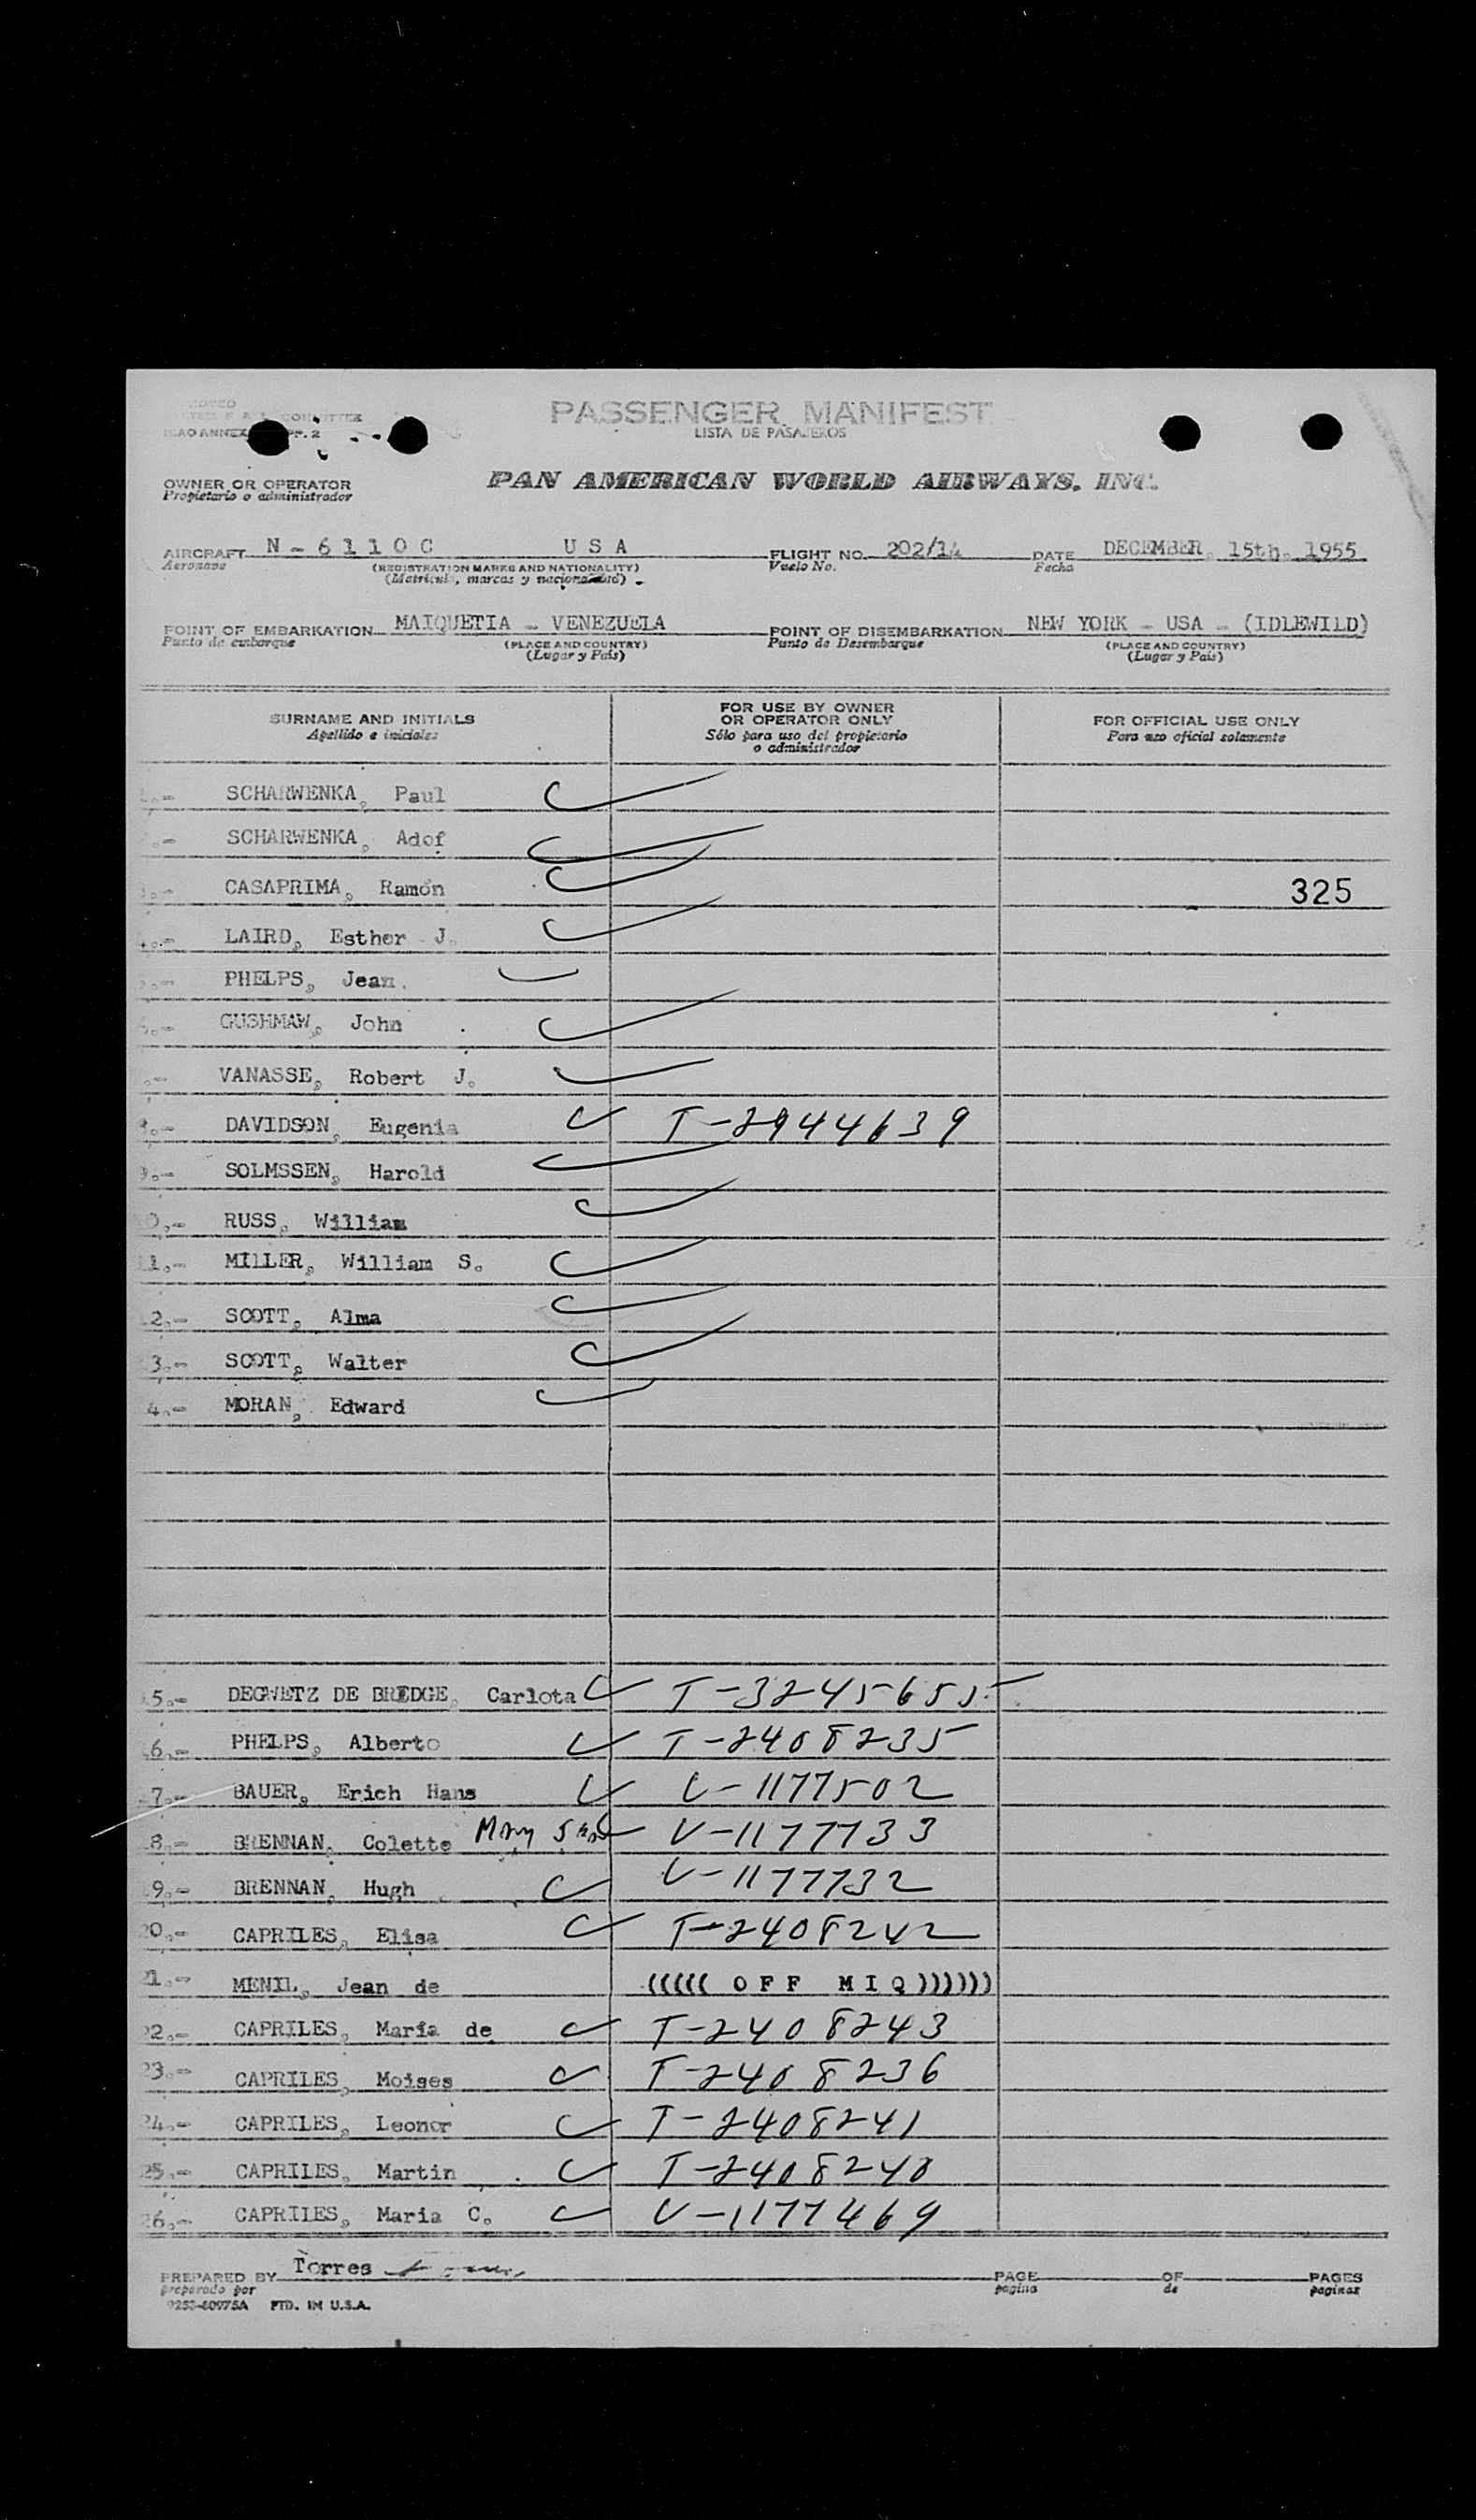 PASSENGER MANIFEST
LISTA DE PASAJEROS
ICAO ANNEX
OWNER OR OPERATOR
Propietario o administrador
PAN AMERICAN WORLD AIRWAYS, INC.
AIRCRAFT N - 6 1 1 0 C U S A FLIGHT NO. 202/14 DATE DECEMBER, 15th. 1955
Aeronave (REGISTRATION MARKS AND NATIONALITY) Vuelo No. Fecha
(Matrícula, marcas y nacionalidad)
POINT OF EMBARKATION MAIQUETIA - VENEZUELA POINT OF DISEMBARKATION NEW YORK - USA - (IDLEWILD)
Punto de embarque (PLACE AND COUNTRY) Punto de Desembarque (PLACE AND COUNTRY)
(Lugar y País) (Lugar y País)
SURNAME AND INITIALS
Apellido e iniciales
FOR USE BY OWNER
OR OPERATOR ONLY
Sólo para uso del propietario
o administrador
FOR OFFICIAL USE ONLY
Para uso oficial solamente
SCHARWENKA, Paul
SCHARWENKA, Adof
CASAPRIMA, Ramón 325
LAIRD, Esther J.
PHELPS, Jean.
GUSHMAW, John
VANASSE, Robert J.
DAVIDSON, Eugenia T-2944639
SOLMSSEN, Harold
0.- RUSS, William
11.- MILLER, William S.
12.- SCOTT, Alma
3.- SCOTT, Walter
4.- MORAN, Edward
15.- DEGWETZ DE BREDGE, Carlota T-3245655
16.- PHELPS, Alberto T-2408235
7.- BAUER, Erich Hans V-1177502
8.- BRENNAN, Colette Mary V-1177733
19.- BRENNAN, Hugh V-1177732
20.- CAPRILES, Elisa T-2408242
21.- MENIL, Jean de ((((( OFF MIQ))))))
22.- CAPRILES, María de T-2408243
23.- CAPRILES, Moises T-2408236
24.- CAPRILES, Leonor T-2408241
25.- CAPRILES, Martin T-2408240
26.- CAPRILES, Maria C. V-1177469
PREPARED BY Torres PAGE OF PAGES
preparado por pagina de paginas
9253-60975A PTD. IN U.S.A.